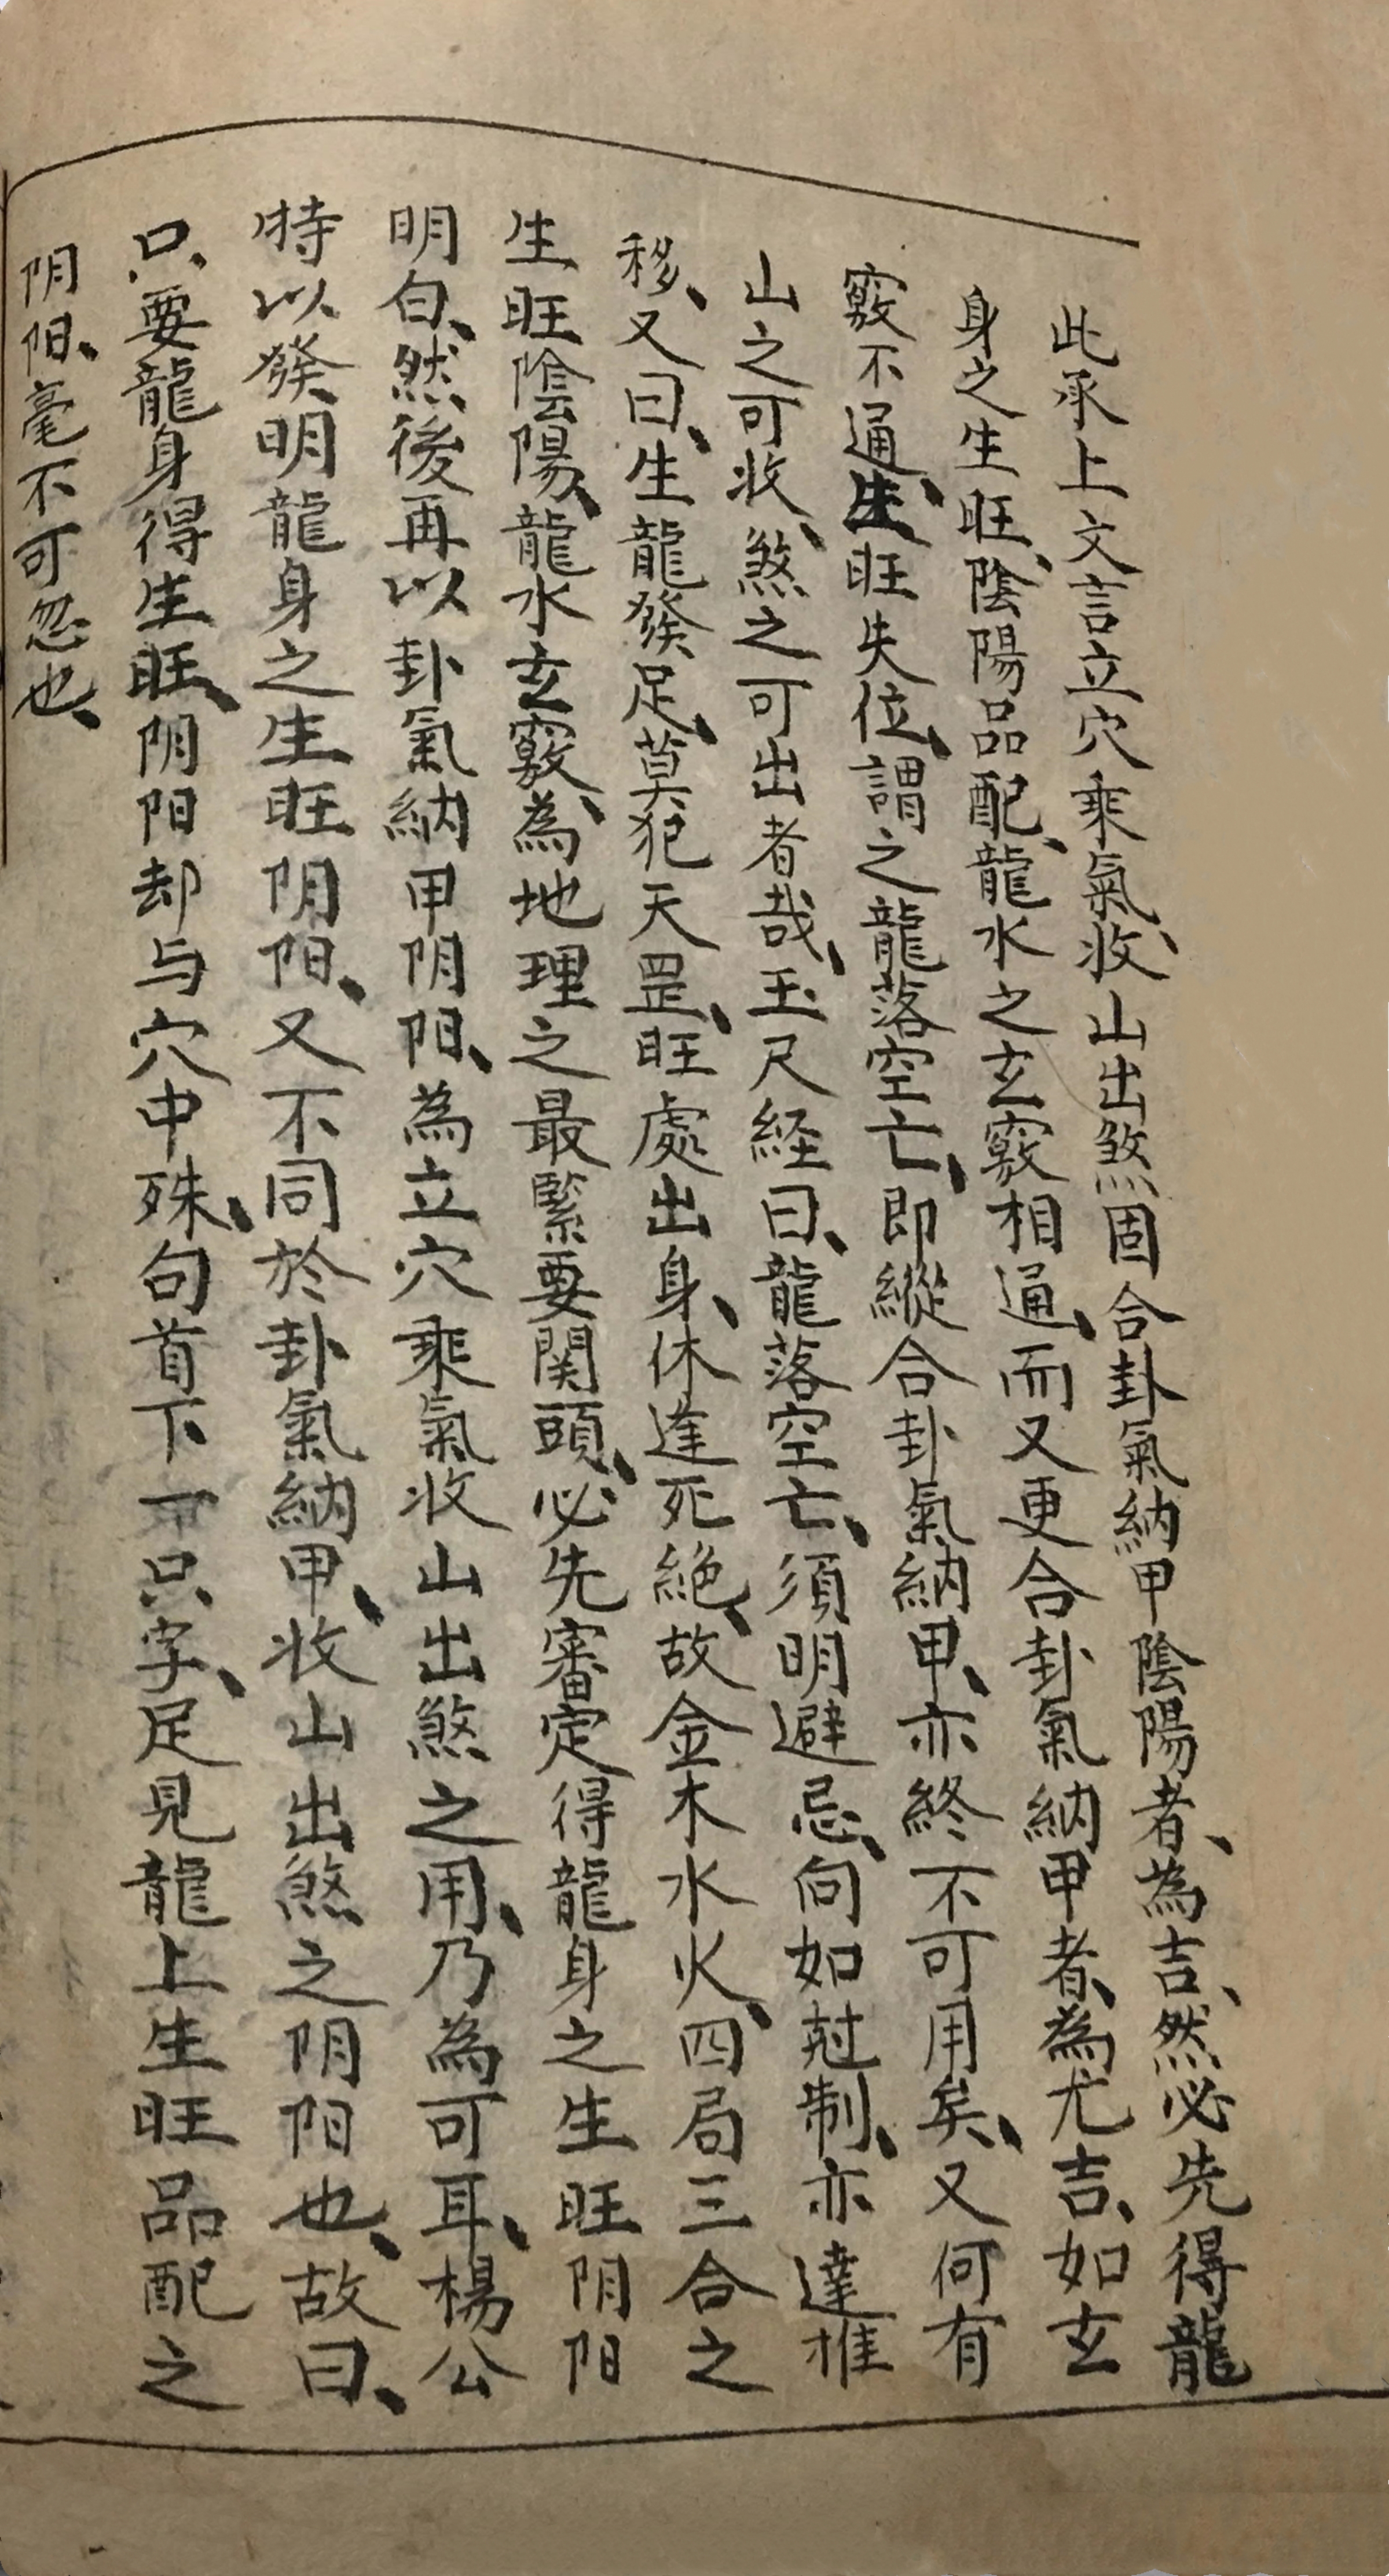 此承上文言立穴乘氣、收山出煞固合卦氣納甲陰陽者、為吉、然必先得龍
身之生旺、陰陽品配、龍水之玄竅相通、而又更合卦氣納甲者、為尤吉、如玄
竅不通、生旺失位、謂之龍落空亡、即縱合卦氣納甲、亦終不可用矣、又何有
山之可收、煞之可出者哉、玉尺経曰、龍落空亡、須明避忌、向如尅制、亦達推
移、又曰、生龍發足、莫犯天罡、旺處出身、休逢死絕、故金木水火、四局三合之
生旺陰陽、龍水玄竅、為地理之最緊要関頭、必先審定得龍身之生旺阴阳
明白、然後再以卦氣納甲阴阳、為立穴乘氣收山出煞之用、乃為可耳、楊公
特以發明龍身之生旺阴阳、又不同於卦氣納甲、收山出煞之阴阳也、故曰、
只要龍身得生旺、阴阳却与穴中殊、句首下一只字、足見龍上生旺品配之
阴阳、毫不可忽也、